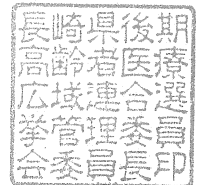 長崎県後期
高齢者医療
広域連合選
挙管理委員
会委員長印